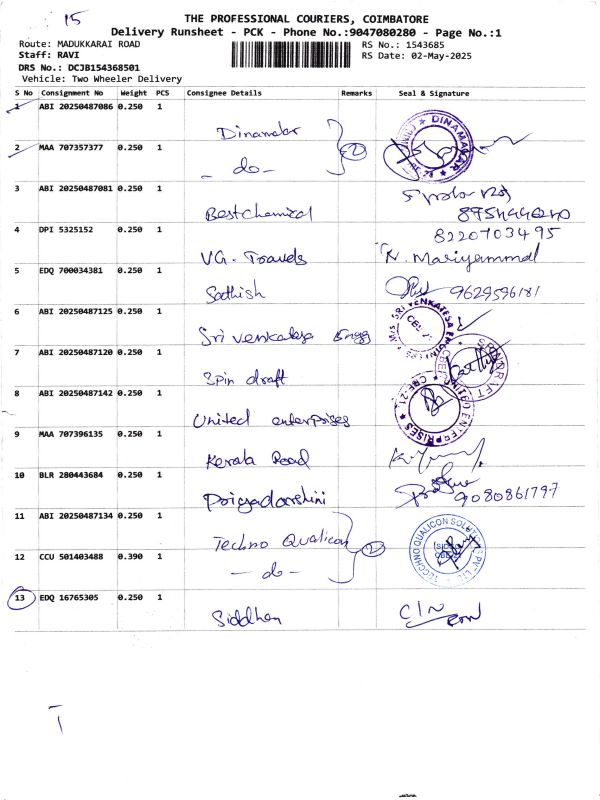 15
THE PROFESSIONAL COURIERS, COIMBATORE
Delivery Runsheet - PCK - Phone No.:9047080280 - Page No.:1
Route: MADUKKARAI ROAD
RS No.: 1543685
Staff: RAVI
RS Date: 02-May-2025
DRS No.: DCJB154368501
Vehicle: Two Wheeler Delivery
S No Consignment No Weight PCS Consignee Details Remarks Seal & Signature
1 ABI 20250487086 0.250 1
Dinamalar
2 MAA 707357377 0.250 1
- do - 2
DINAMALAR
3 ABI 20250487081 0.250 1
Best chemical 8754446240
4 DPI 5325152 1
VG. Travels 8220703495
N. Mariyammal
5 EDQ 700034381 0.250 1
Sathish 9629596181
6 ABI 20250487125 0.250 1
Sri venkatesa Engg
M/s. SRI VENKATESA ENGINEERS
7 ABI 20250487120 0.250 1
Spin draft
SPINDRAFT
8 ABI 20250487142 0.250 1
United enterprises
UNITED ENTERPRISES CBE-21
9 MAA 707396135 0.250 1
Kerala Road
10 BLR 280443684 0.250 1
Priyadarshini 9080861797
11 ABI 20250487134 0.250 1
Techno Qualicon
12 CCU 501403488 0.390 1
- do - 2
TECCHNO QUALICON SOLUTIONS PVT LTD
13 EDQ 16765305 0.250 1
Siddhan
T